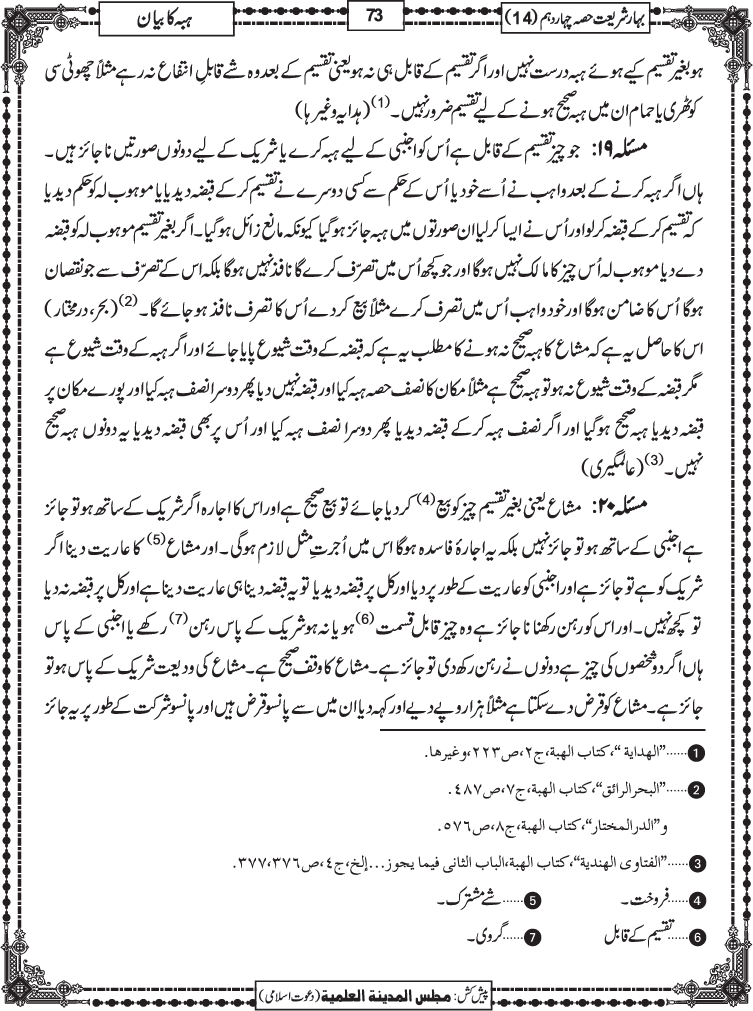 بہار شریعت حصہ چہاردہم (14)
73
ہبہ کا بیان
ہو بغیر تقسیم کیے ہوئے ہبہ درست نہیں اور اگر تقسیم کے قابل ہی نہ ہو یعنی تقسیم کے بعد وہ شے قابلِ انتفاع نہ رہے مثلاً چھوٹی سی
کوٹھری یا حمام ان میں ہبہ صحیح ہونے کے لیے تقسیم ضرور نہیں۔(1) (ہدایہ وغیرہا)
مسئلہ ۱۹: جو چیز تقسیم کے قابل ہے اُس کو اجنبی کے لیے ہبہ کرے یا شریک کے لیے دونوں صورتیں ناجائز ہیں۔
ہاں اگر ہبہ کرنے کے بعد واہب نے اُسے خود یا اُس کے حکم سے کسی دوسرے نے تقسیم کرکے قبضہ دیدیا یا موہوب لہ کو حکم دیدیا
کہ تقسیم کرکے قبضہ کرلو اور اُس نے ایسا کرلیا ان صورتوں میں ہبہ جائز ہوگیا کیونکہ مانع زائل ہوگیا۔ اگر بغیر تقسیم موہوب لہ کو قبضہ
دے دیا موہوب لہ اُس چیز کا مالک نہیں ہوگا اور جو کچھ اُس میں تصرّف کرے گا نافذ نہیں ہوگا بلکہ اس کے تصرّف سے جو نقصان
ہوگا اُس کا ضامن ہوگا اور خود واہب اُس میں تصرف کرے مثلاً بیع کردے اُس کا تصرف نافذ ہو جائے گا۔(2) (بحر، درمختار)
اس کا حاصل یہ ہے کہ مشاع کا ہبہ صحیح نہ ہونے کا مطلب یہ ہے کہ قبضہ کے وقت شیوع پایا جائے اور اگر ہبہ کے وقت شیوع ہے
مگر قبضہ کے وقت شیوع نہ ہو تو ہبہ صحیح ہے مثلاً مکان کا نصف حصہ ہبہ کیا اور قبضہ نہیں دیا پھر دوسرا نصف ہبہ کیا اور پورے مکان پر
قبضہ دیدیا ہبہ صحیح ہوگیا اور اگر نصف ہبہ کرکے قبضہ دیدیا پھر دوسرا نصف ہبہ کیا اور اُس پر بھی قبضہ دیدیا یہ دونوں ہبہ صحیح
نہیں۔(3) (عالمگیری)
مسئلہ ۲۰: مشاع یعنی بغیر تقسیم چیز کو بیع(4) کردیا جائے تو بیع صحیح ہے اور اس کا اجارہ اگر شریک کے ساتھ ہو تو جائز
ہے اجنبی کے ساتھ ہو تو جائز نہیں بلکہ یہ اجارۂ فاسدہ ہوگا اس میں اُجرتِ مثل لازم ہوگی۔ اور مشاع(5) کا عاریت دینا اگر
شریک کو ہے تو جائز ہے اور اجنبی کو عاریت کے طور پر دیا اور کل پر قبضہ دیدیا تو یہ قبضہ دینا ہی عاریت دینا ہے اور کل پر قبضہ نہ دیا
تو کچھ نہیں۔ اور اس کو رہن رکھنا ناجائز ہے وہ چیز قابل قسمت(6) ہو یا نہ ہو شریک کے پاس رہن(7) رکھے یا اجنبی کے پاس
ہاں اگر دو شخصوں کی چیز ہے دونوں نے رہن رکھ دی تو جائز ہے۔ مشاع کا وقف صحیح ہے۔ مشاع کی ودیعت شریک کے پاس ہو تو
جائز ہے۔ مشاع کو قرض دے سکتا ہے مثلاً ہزار روپے دیے اور کہہ دیا ان میں سے پانسو قرض ہیں اور پانسو شرکت کے طور پر یہ جائز
1......"الهداية"، كتاب الهبة، ج٢، ص٢٢٣، وغيرها.
2......"البحر الرائق"، كتاب الهبة، ج٧، ص٤٨٧.
و"الدرالمختار"، كتاب الهبة، ج٨، ص٥٧٦.
3......"الفتاوى الهندية"، كتاب الهبة، الباب الثانى فيما يجوز...إلخ، ج٤، ص٣٧٦،٣٧٧.
4......فروخت۔ 5......شے مشترک۔
6......تقسیم کے قابل 7......گروی۔
پیش کش: مجلس المدينة العلمية (دعوت اسلامی)